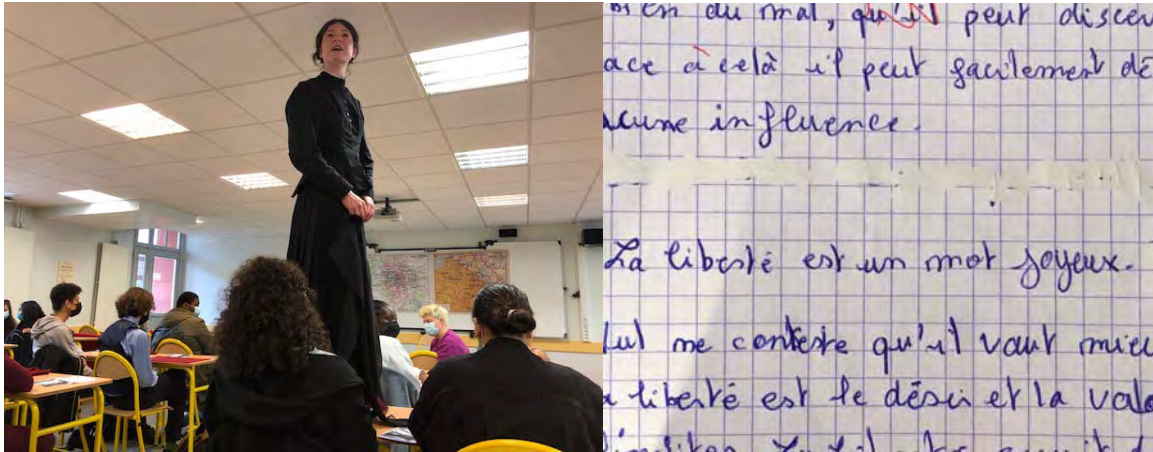 bien du mal, qu'il peut discer
ace à celà il peut facilement dé
ucune influence.
La liberté est un mot joyeux.
lul me conteste qu'il vaut mieu
a liberté est le désir et la vale